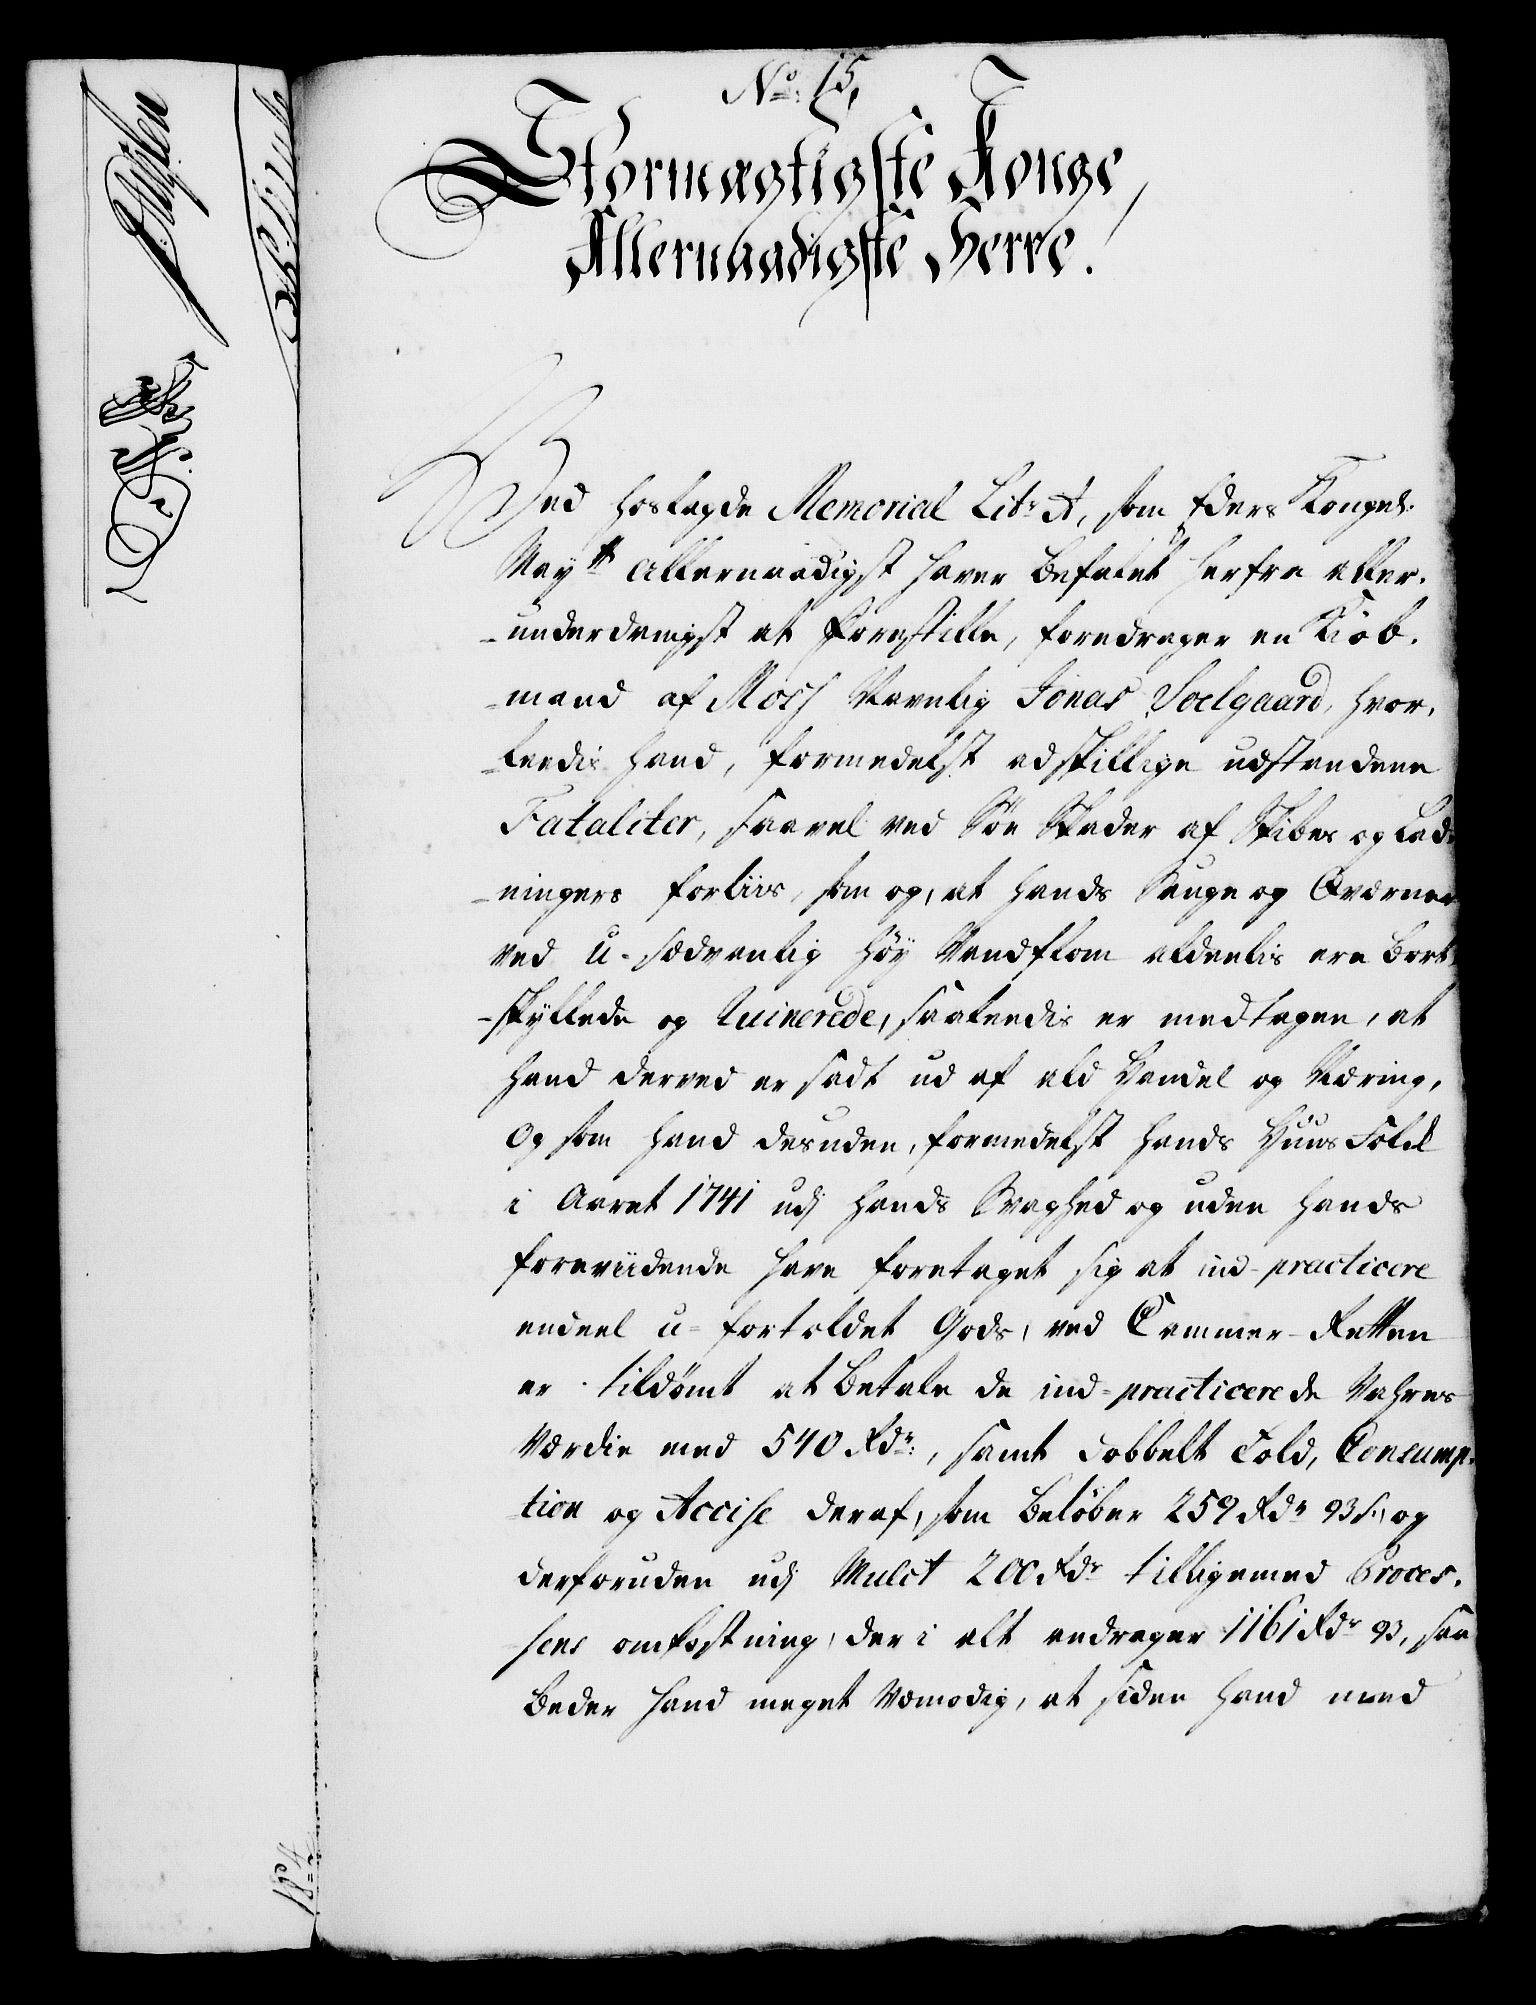 No: 15,
Stormægtigste Konge,
Allernaadigste Herre.
Ved hoslagde Memorial Litr A, som Eders Kongel:
Maytt allernaadigst haver befalet herfra aller-
-underdanigst at forestille, foredrager en Kiøb-
-mand af Moss Navnlig Jonas Soelgaard, hvor-
-ledis hand, formedelst adskillige udstandene
Fataliter, saavel ved Søe Skader af Skibes og Lad-
-ningers forliis, som og, at hands Sauge og Qværner
ved u-sædvanlig høy Vandflom aldeelis ere bort-
-skyllede og Ruinerede, saaledis er medtagen, at
hand derved er sadt ud af ald Handel og Næring,
Og som hand desuden, formedelst hands Huus Folck
i Aaret 1741 udj hands Svaghed og uden hands
foreviidende have foretaget sig at ind-practicere
endeel u-fortoldet Gods, ved Cammer-Retten
er tildømt at betale de ind-practicerede Vahres
Værdie med 540 Rdr:, samt dobbelt Told, Consump-
-tion og Accise deraf, som beløber 259 Rdr 93 s:, og
derforuden udj Mulct 200 Rdr tilligemed Proces-
sens omkostning, der i alt andrager 1161 Rdr 93, saa
beder hand meget Vemodig, at siden hand med